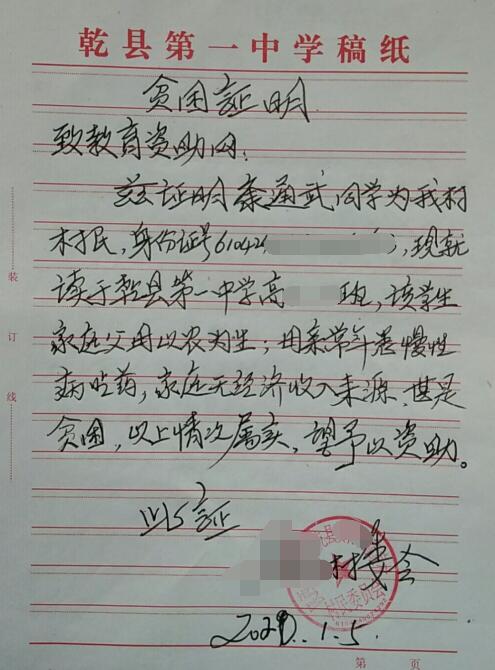 乾县第一中学稿纸
贫困証明
致教育资助网:
兹证明通武同学为我村
村民,身份证号610424,现就
读于乾县第一中学高 班,该学生
家庭父母以农为生;母亲常年患慢性
病吃药,家庭无经济收入来源,甚是
贫困,以上情况属实,望予以资助。
以証
村委会
村民委员会
1.5.
装
订
线
第 页